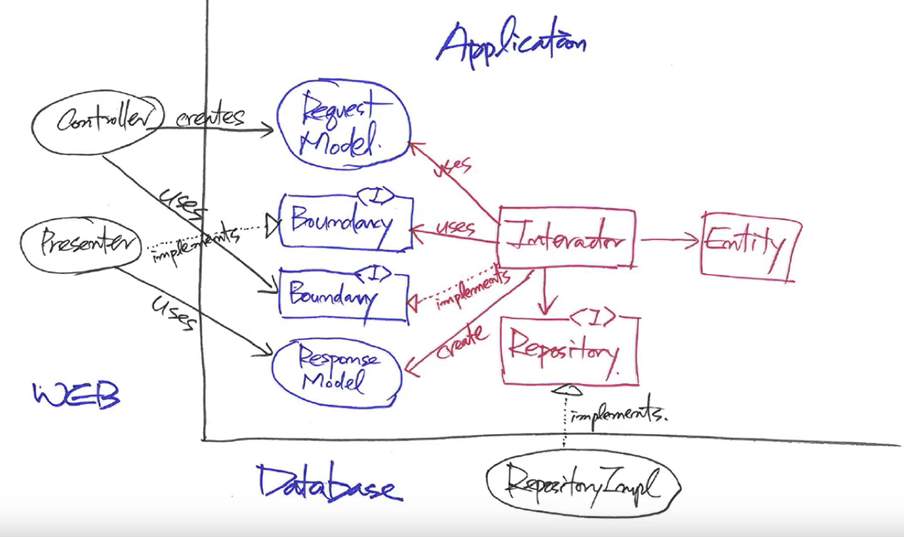 Application
Controller
creates
Request
Model.
uses
uses
<I>
Boundary
uses
Interador
Entity
Presenter
implements
<I>
Boundary
implements
uses
Response
Model
create
<I>
Repository
WEB
implements.
Database
RepositoryImpl